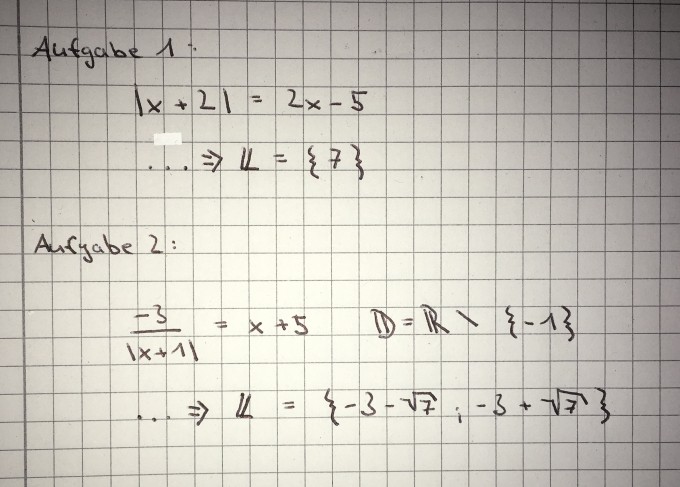 Aufgabe 1:
|x + 2| = 2x - 5
... ⇒ 𝕃 = {7}
Aufgabe 2:
-3/|x+1| = x + 5 𝔻 = ℝ \ {-1}
... ⇒ 𝕃 = {-3 - √7 ; -3 + √7}